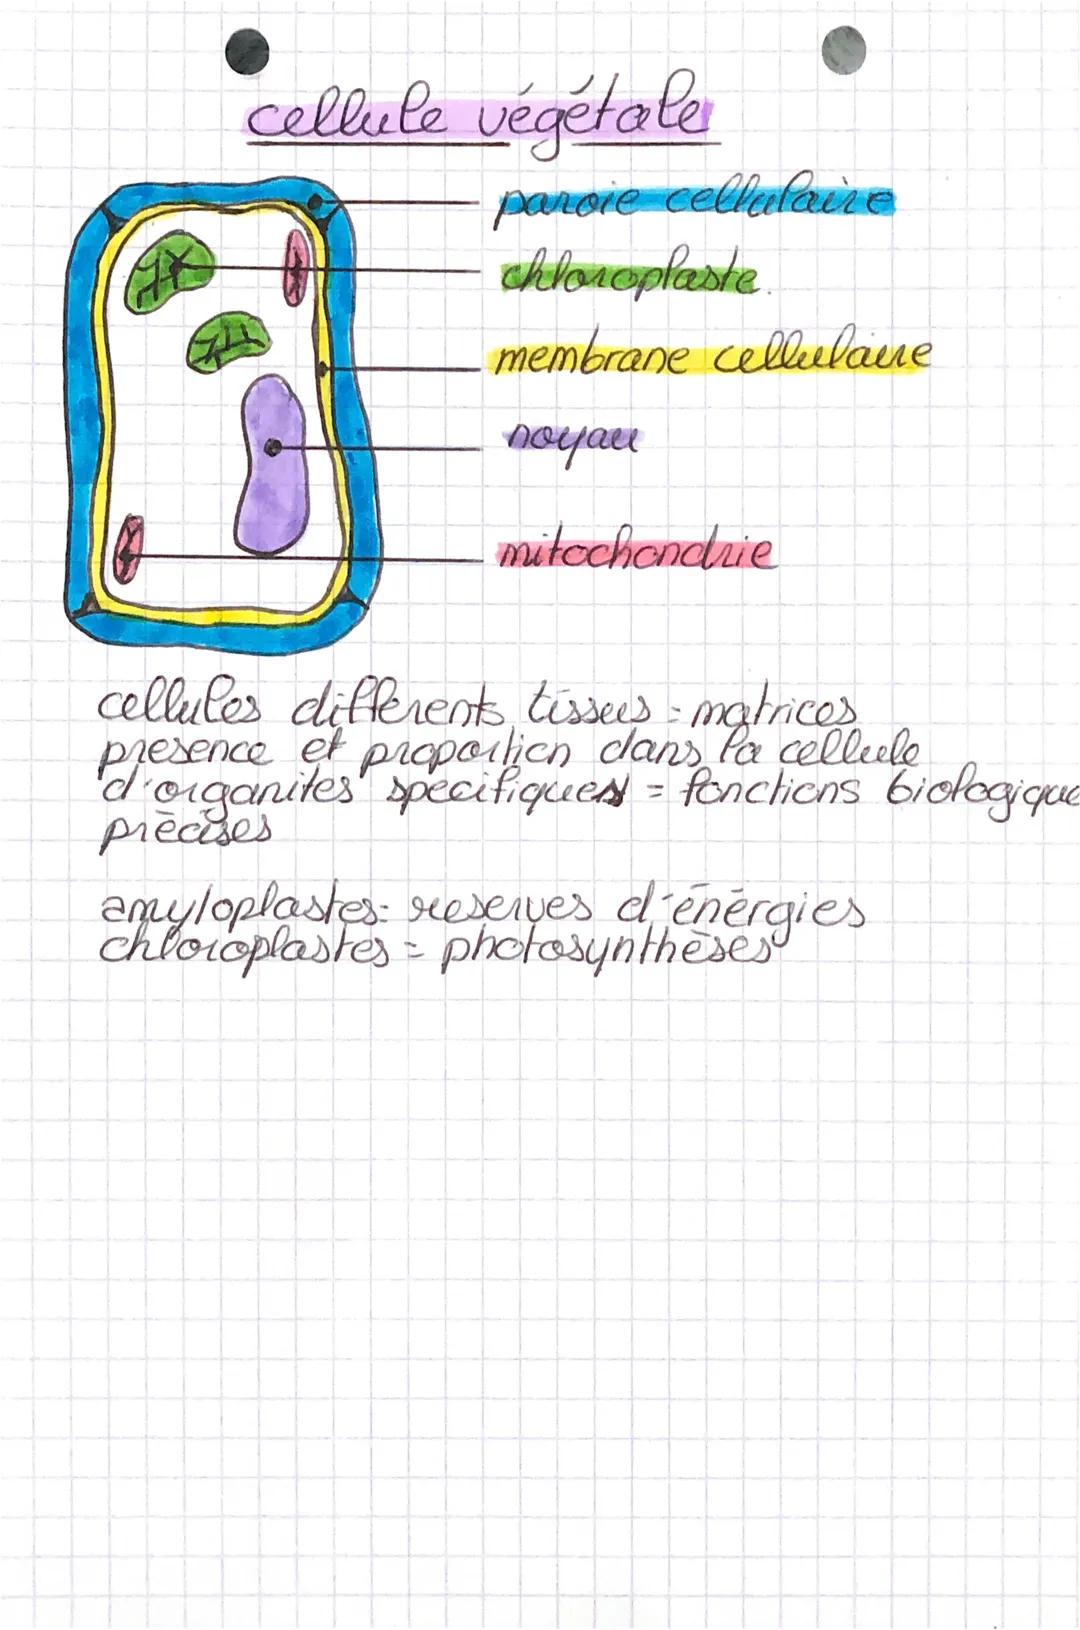 cellule végétale
paroie cellulaire
chloroplaste.
membrane cellulaire
noyau
mitochondrie
cellules différents tissus = matrices
presence et proportion dans la cellule
d'organites specifiques = fonctions biologique
précises
amyloplastes = reserves d'énérgies
chloroplastes = photosynthèses